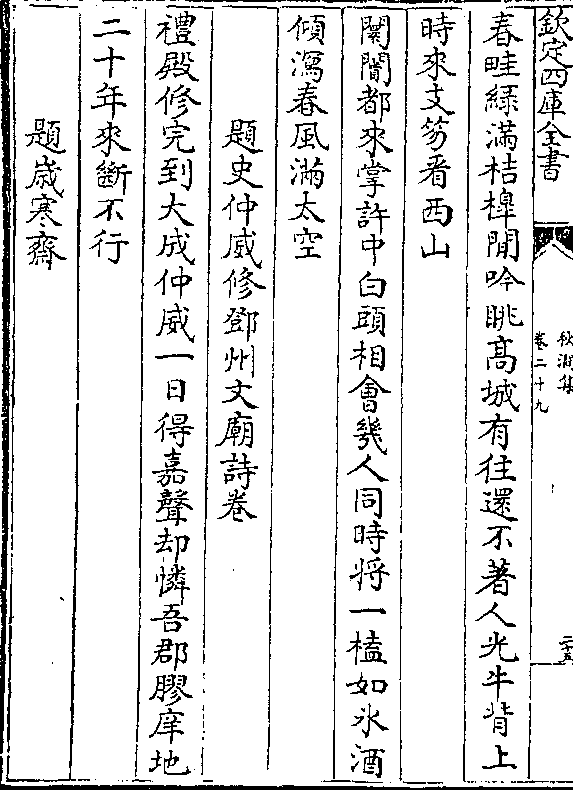 欽定四庫全書
秋澗集
卷二十九
二十五
春畦緑滿桔橰閒吟眺髙城有往還不著人光牛背上
時來支笏看西山
闤闠都來掌許中白頭相會幾人同時將一榼如氷酒
傾瀉春風滿太空
題史仲威修鄧州文廟詩卷
禮殿修完到大成仲威一日得嘉聲却憐吾郡膠庠地
二十年來斷不行
題嵗寒齋